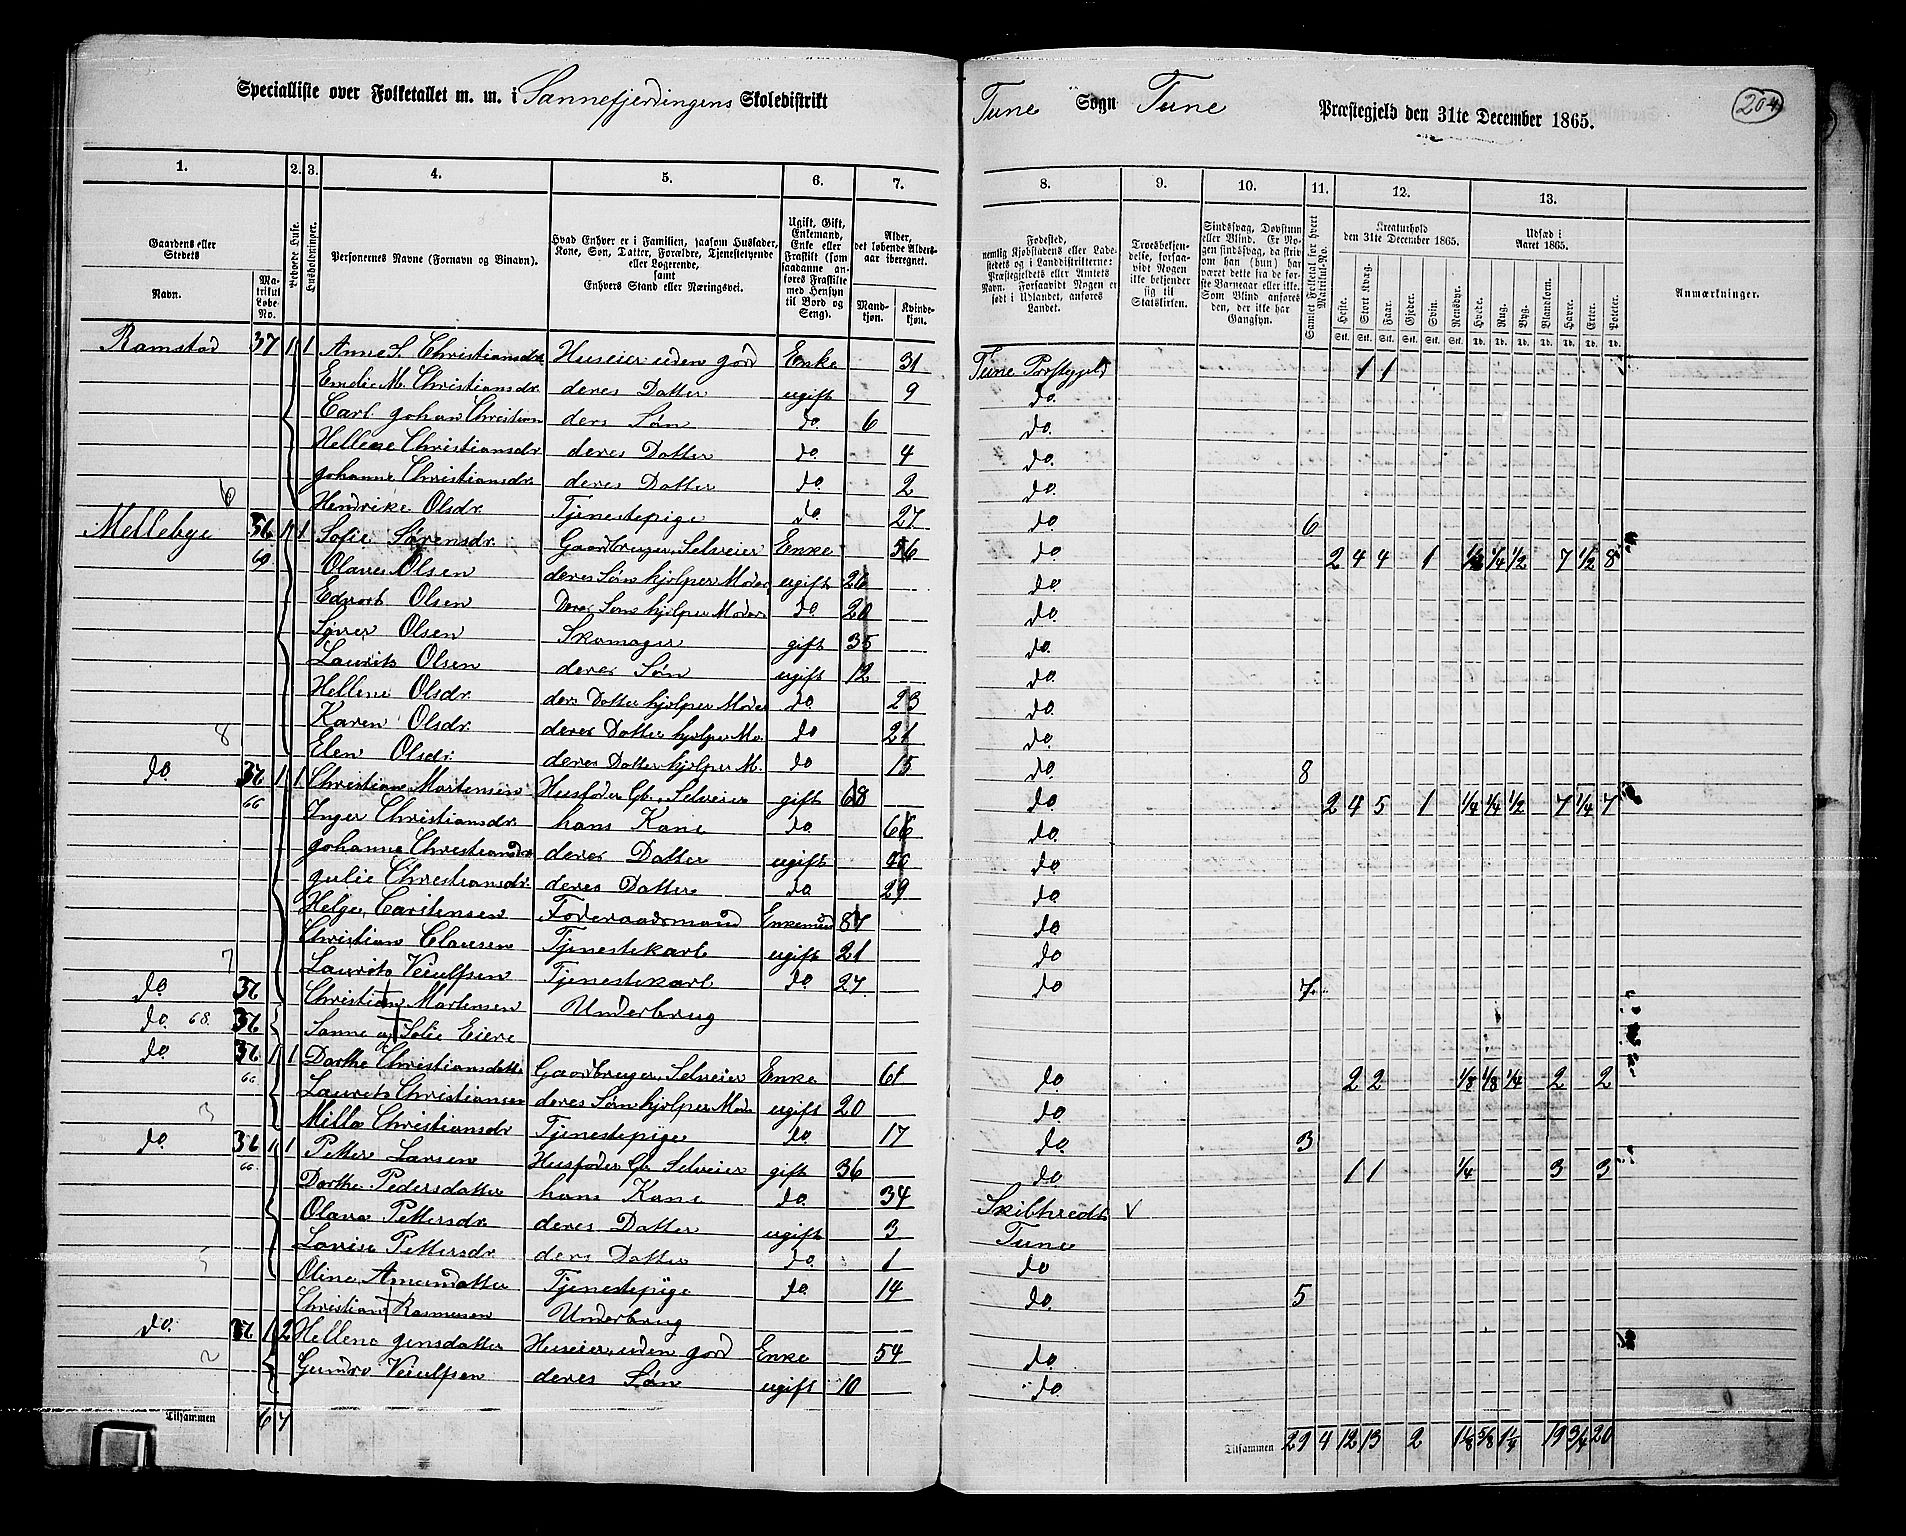 Specialliste over Folketallet m. m. i Sannefjerdingens Skoledistrikt
Tune Sogn Tune Præstegjeld den 31te December 1865.
204
1. 2. 3. 4. 5. 6. 7. 8. 9. 10. 11. 12. 13.
Gaardens eller Stedets
Navn.
Matrikul Løbe-No.
Beboede Huse.
Husholdninger.
Personernes Navne (Fornavn og Binavn).
Hvad Enhver er i Familien, saasom Husfader, Kone, Søn, Datter, Forældre, Tjenestetyende eller Logerende, samt Enhvers Stand eller Næringsvei.
Ugift, Gift, Enkemand, Enke eller Fraskilt (som saadanne anføres Fraskilte med Hensyn til Bord og Seng).
Alder, det løbende Aldersaar iberegnet.
Mandkjøn. Kvindekjøn.
Fødested, nemlig Kjøbstadens eller Ladestedets og i Landdistrikterne: Præstegjeldets eller Amtets Navn. Forsaavidt Nogen er født i Udlandet, anføres Landet.
Troesbekjendelse, forsaavidt Nogen ikke bekjender sig til Statskirken.
Sindssvag, Døvstum eller Blind. Er Nogen sindssvag, da skrives om han (hun) har været dette fra de første Barneaar eller ikke. Som Blind anføres den, der ikke har Gangsyn.
Samlet Folketal for hvert Matrikul-No.
Kreaturhold den 31te December 1865.
Heste. Stort Kvæg. Faar. Gjeder. Svin. Rensdyr.
Udsæd i Aaret 1865.
Hvede. Rug. Byg. Blandkorn. Havre. Erter. Poteter.
Anmærkninger.
Ramstad 37 1 1 Anne S. Christiansdr. Huseier uden Jord Enke 31 Tune Præstegjeld 1 1
Emelie M. Christiansdr. deres Datter ugift 9 do.
Carl Johan Christian ders Søn do. 6 do.
Hellene Christiansdr deres Datter do. 4 do.
Johanne Christiansdr. deres Datter do. 2 do.
6 Hendrike Olsdr. Tjenestepige do. 27 do. 6
Mellebye 36 1 1 Sofie Sørensdr. Gaardbruger, Selveier Enke 56 do. 2 4 4 1 1/2 1/4 1/2 7 1/2 8
69 Olaves Olsen deres Søn hjelper Moder ugift 26 do.
Edvart Olsen Deres Søn hjelper Moder do. 20 do.
Syver Olsen Skomager gift 35 do.
Laurits Olsen deres Søn ugift 12 do.
Hellene Olsdr. ders Datter hjelper Moder do. 23 do.
8 Karen Olsdr. deres Datter hjelper Mo. do 21 do.
Elen Olsdr. deres Datter hjelper M. do 15 do. 8
do. 36 1 1 Christian Mortensen Husfader Gb. Selveier gift 68 do. 2 4 5 1 1/4 1/4 1/2 7 1/4 7
66 Inger Christiansdr. hans Kone do. 66 do.
Johanne Christiansdr deres Datter ugift do.
Julie Christiansdr. deres Datter do 29 do.
Helge Carstensen Føderaadsmand Enkemand do.
Christian Clausen Tjenestekarl ugift 21 do
7 Laurits Veiulfsen Tjenestekarl do. 27 do 7
do. 36 Christian Mortensen Underbrug
do. 68. 36 Sanne og Solie Eiere
do. 36 1 1 Dorthe Christiansdatter Gaardbruger, Selveier Enke 61 do. 2 2 1/8 1/8 1/4 2 2
66 Laurits Christiansen deres Søn hjelper Mod. ugift 20 do.
3 Milla Christiansdr Tjenestepige do. 17 do 3
do. 36 1 1 Petter Larsen Husfader Gb. Selveier gift 36 do 1 1 1/4 3 3
66. Dorthe Pedersdatter hans Kone do. 34 Skibthvedt
Olava Pettersdr. deres Datter ugift 3 Tune
5 Lovise Pettersdr. ders Datter do. 1 do
Oline Amundatter Tjenestepige do. 14 do. 5
Christian Rasmusen Underbrug
do. 36 1 2 Hellene Jensdatter Huseier uden Jord Enke 54 do.
2 Gundro Veiulfsen deres Søn ugift 10 do.
Tilsammen 6 7
Tilsammen 29 4 12 13 2 1 1/8 5/8 1 1/4 19 3/4 20